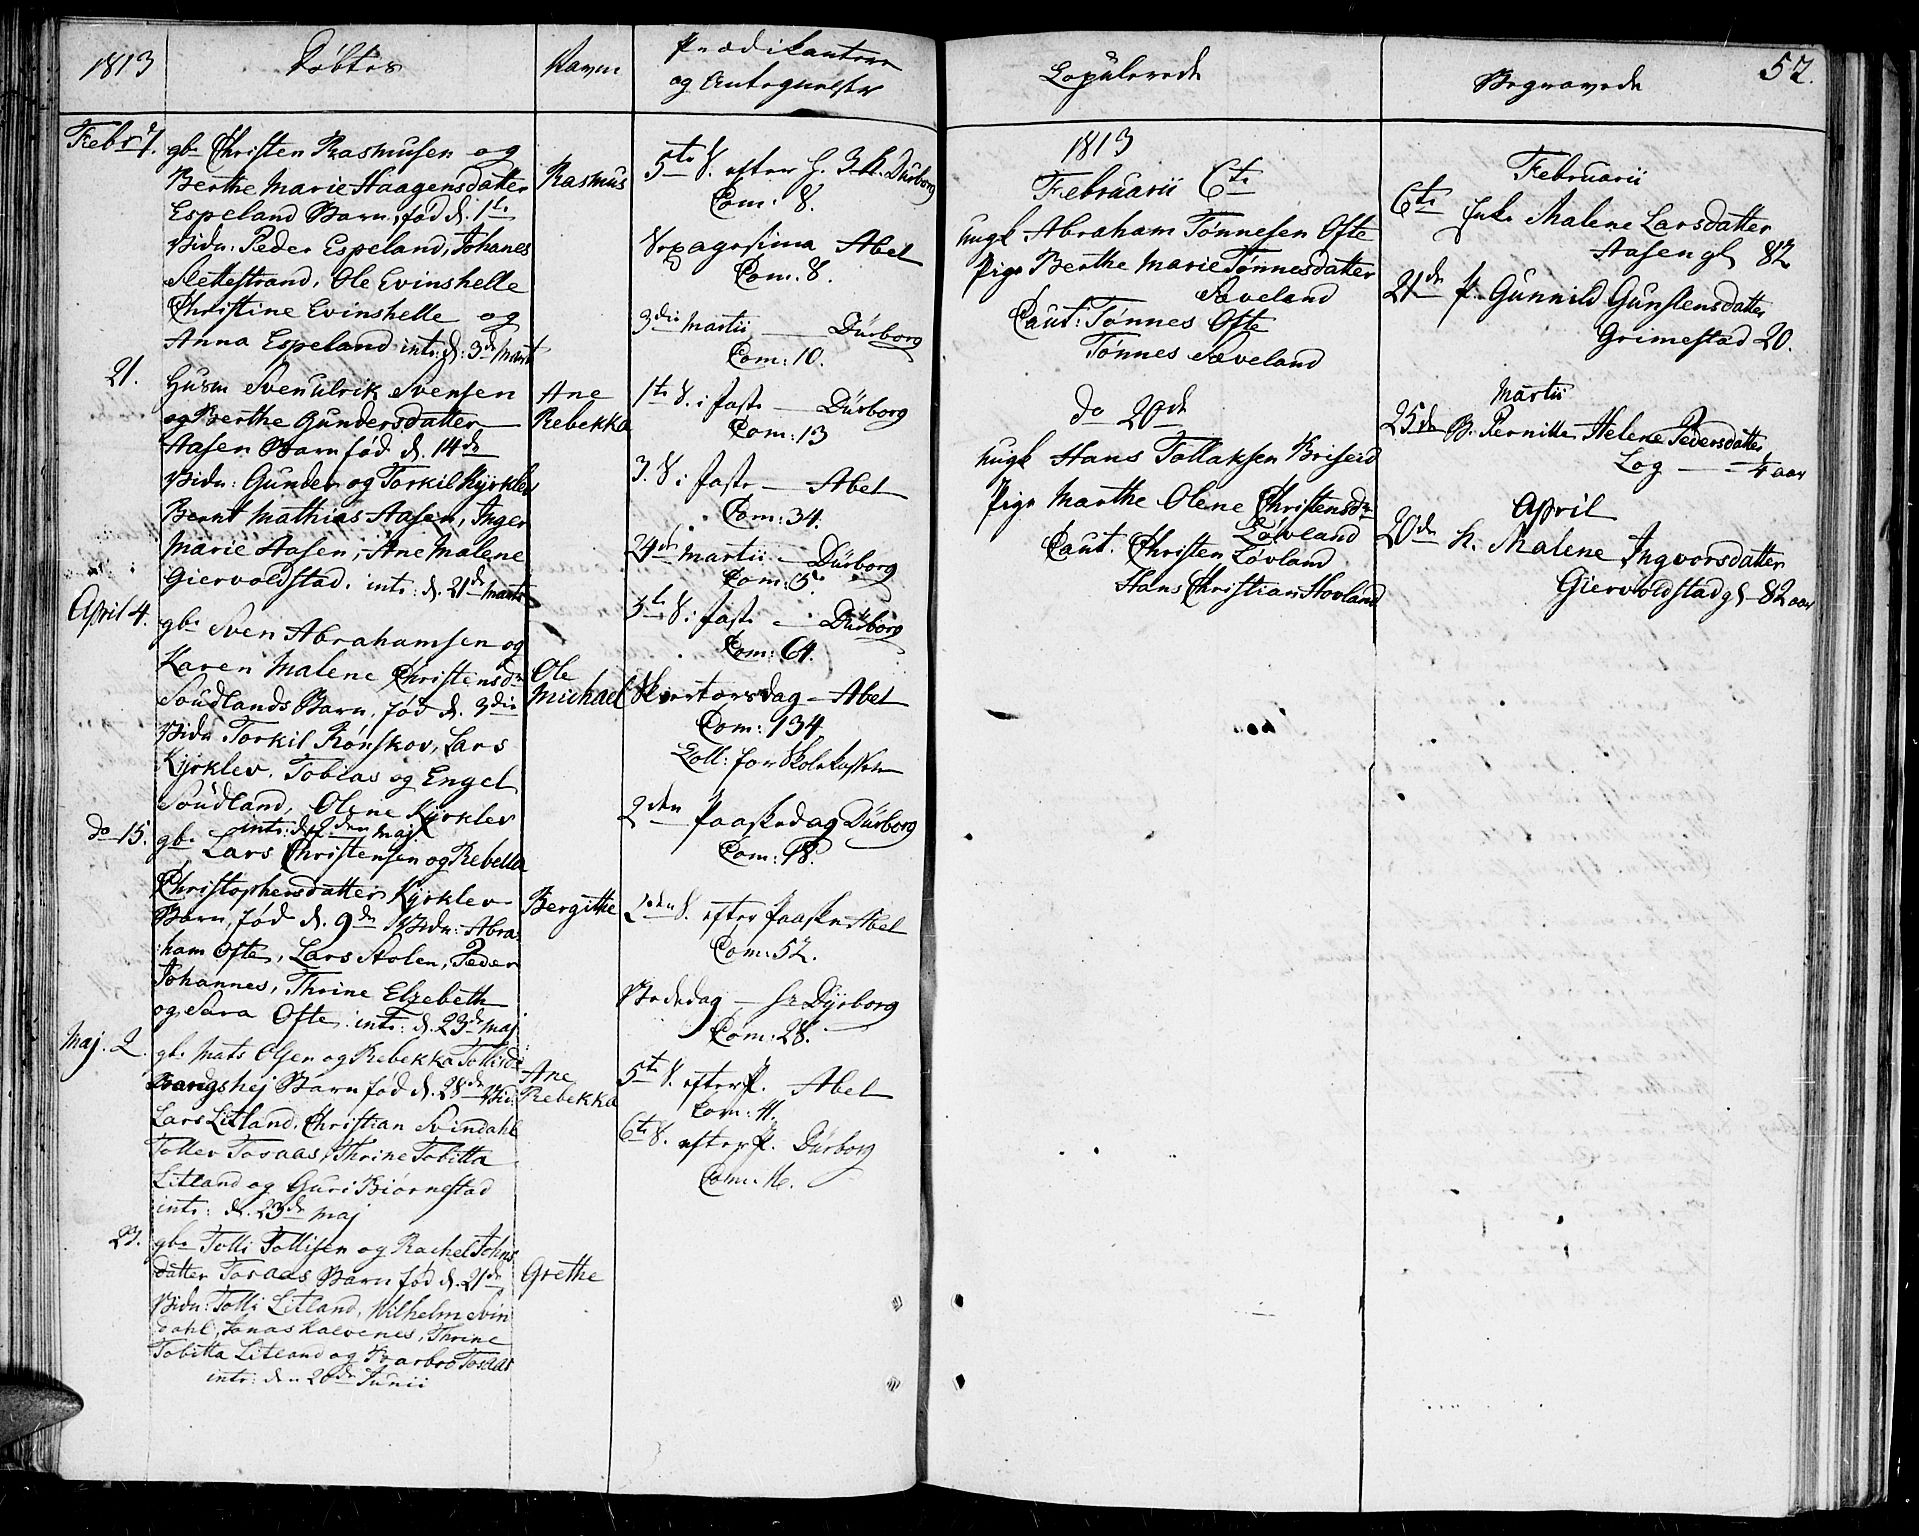 1813
Døbte
Navn
Prædikantere
og Autogiæster
Febr 7.
gbr Christen Rasmusen og
Berthe Marie Haagensdatter
Espeland Barn, fød d. 1te
Vidn: Peder Espeland, Johanes
Slettestrand, Ole Evinshelle
Christine Evinshelle og
Anna Espeland intr: d: 3die Martii
Rasmus
21.
Husm Sven Ulrik Svensen
og Berthe Gundersdatter
Aasen Barn fød d. 14de
Vidn: Gunder og Torkil Kyrklev
Bernt Mathias Aasen, Inger
Marie Aasen, Ane Malene
Giervoldstad. intr: d. 21de Martii
Ane
Rebekka
April 4.
gbr Sven Abrahamsen og
Karen Malene Christensdr
Soudlands Barn, fød d. 3die
Vidn Torkil Rønskov, Lars
Kyrklev, Tobias og Engel
Soudland, Olene Kyrklev
intr: d. 2den Maj
Ole
Michael
do 15.
gbr Lars Christensen og Rebekka
Christophersdatter Kyrklev
Barn, fød d. 9de Vidn: Abra
ham Ofte, Lars Stolen, Peder
Johannes, Thrine Elzebeth
og Sara Ofte. intr: d. 23de Maj
Bergithe
Maj. 2.
gbr Mats Olsen og Rebekka Tollisdr
Barn fød d. 28de Vid:
Lars Litland, Christian Svindahl
Toller Tosaas, Thrine Tobitta
Litland og Guri Biørnestad
intr: d. 23de Maj
Ane
Rebekka
23.
gbr Tolli Tollisen og Rachel Johns
datter Tosaas Barn fød d. 21de
Vidn: Tolli Litland, Wilhelm Svin
dahl, Jonas Kalvenes, Thrine
Tobitta Litland og Barbro Tosaas
intr: den 20de Junii
Grethe
5te S. efter H. 3 K. Dürborg
Com: 8.
Sexagesima Abel
Com. 8.
3die Martii — Dürborg
Com: 10.
1te S. i faste — Dürborg
Com: 13
3. S. i faste — Abel
Com: 34.
24de Martii — Dürborg
Com: 5.
5te S. i faste — Dürborg
Com: 64.
Skiertorsdag — Abel
Com: 134
Coll: for Skolekassen
2den Paaskedag Dürborg
Com: 18.
2den S. efter Paaske Abel
Com: 52.
Bededag — Hr Dyrborg
Com: 28.
5te S. efter P. Abel
Com: 11.
6te S. efter P. Dürborg
Com: 16.
Copulerede
1813
Februarii 6te
Ungk Abraham Tønnesen Ofte
Pige Berthe Marie Tønnesdatter
Sæveland
Caut: Tønnes Ofte
Tønnes Sæveland
do 20de
Ungk Hans Tollaksen Briseid
Pige Marthe Olene Christensdr
Løvland
Caut. Christen Løvland
Hans Christian Hovland
Begravede
52.
Februarii
6te Enke Malene Larsdatter
Aasen gl 82
21de P. Gunnild Gunstensdatter
Grimestad 20.
Martii
25de B. Pernille Helene Pedersdatter
Log — 1/4 aar
April
20de K. Malene Ingvorsdatter
Giervoldstad gl 82 aar